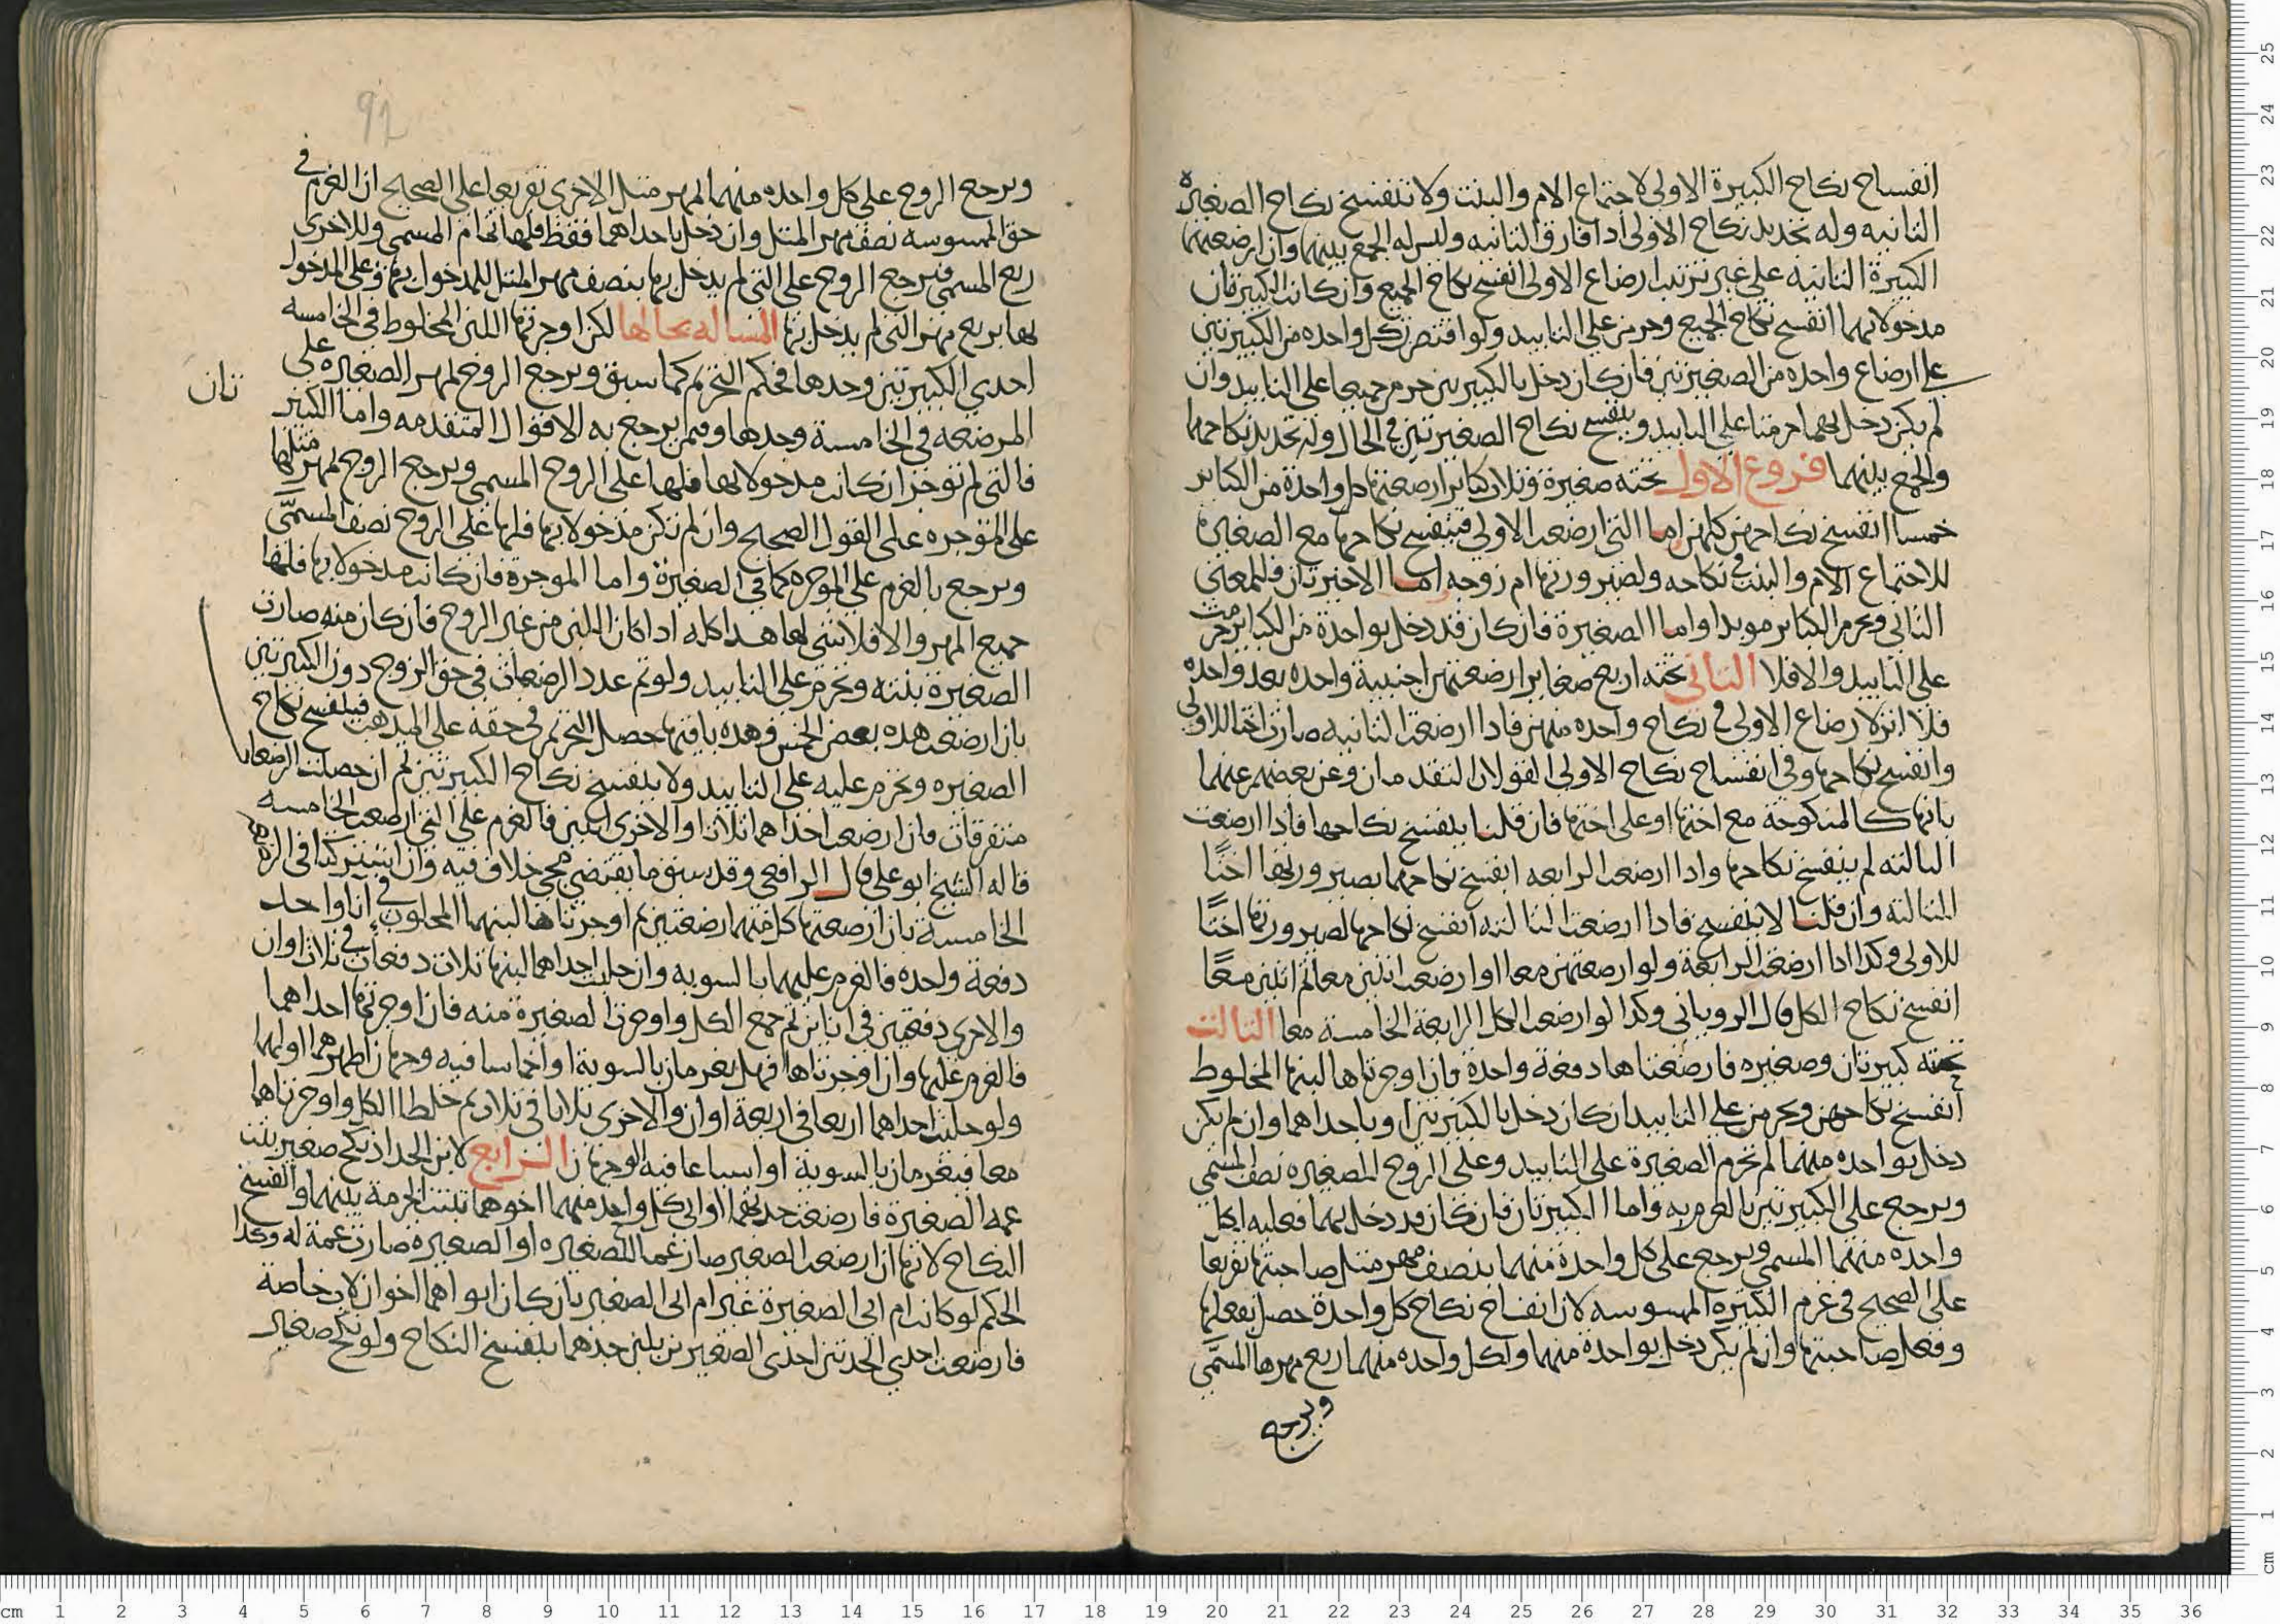 انفساخ نكاح الكبيرة الاولى لاجتماع الام والبنت ولا تنفسخ نكاح الصغيره
الثانيه وله تجديد نكاح الاولى اذا فارق الثانيه وليس له الجمع بينهما وان ارضعتهما
الكبيرة الثانيه على غير ترتيب ارضاع الاولى انفسخ نكاح الجميع وان كانت الكبيرتان
مدخولا بهما انفسخ نكاح الجميع وحرمن على التابيد ولو اقتصرت كل واحده من الكبيرتين
على ارضاع واحده من الصغيرتين فان كان دخل بالكبيرتين حرم جميعا على التابيد وان
لم يكن دخل بهما حرمتا على التابيد وينفسخ نكاح الصغيرتين في الحال وله تجديد نكاحهما
والجمع بينهما فروع الاول تحته صغيرة وثلاث كبائر ارضعتها كل واحدة من الكبائر
خمسا انفسخ نكاحهن كلهن اما التي ارضعت الاولى فينفسخ نكاحها مع الصغيره
للاجتماع الام والبنت في نكاحه ولصيرورتها ام زوجه اما الاخيرتان فللمعنى
الثاني وتحرم الكبائر موبدا واما الصغيرة فان كان قد دخل بواحدة من الكبائر حرمت
على التابيد والا فلا الثاني تحته اربع صغاير ارضعتهن اجنبية واحده بعد واحده
فلا اثر لارضاع الاولى في نكاح واحده منهن فاذا ارضعت الثانيه صارت اختا للاولى
وانفسخ نكاحها وفي انفساخ نكاح الاولى القولان المتقدمان وعن بعضهم عنهما
بانها كالمنكوحة مع اختها او على اختها فان قلنا ينفسخ نكاحها فاذا ارضعت
الثالثه لم ينفسخ نكاحها واذا ارضعت الرابعه انفسخ نكاحهما بصيرورتها اختًا
للثالثه وان قلنا لا ينفسخ فاذا ارضعت الثالثه انفسخ نكاحها لصيرورتها اختًا
للاولى وكذا اذا ارضعت الرابعة ولو ارضعتهن معا او ارضعت اثنتين معا ثم اثنتين معًا
انفسخ نكاح الكل قال الروياني وكذا لو ارضعت الكل الرابعة الخامسة معا الثالث
تحته كبيرتان وصغيره فارضعتاها دفعة واحدة فان اوجرتاها لبنها المخلوط
انفسخ نكاحهن وحرمن على التابيد ان كان دخل بالكبيرتين او باحداهما وان لم يكن
دخل بواحده منهما لم تحرم الصغيرة على التابيد وعلى الزوج للصغيره نصف المسمى
ويرجع على الكبيرتين بالغرم به واما الكبيرتان فان كان قد دخل بهما فعليه لكل
واحده منهما المسمى ويرجع على كل واحدة منهما بنصف مهر مثل صاحبتها تفريعا
على الصحيح في غرم الكبيرة الممسوسه لان انفساخ نكاح كل واحدة حصل بفعلها
وفعل صاحبتها وان لم يكن دخل بواحدة منهما ولكل واحده منهما ربع مهرها المسمى
ويرجع
ويرجع الزوج على كل واحده منهما لمهر مثل الاخرى تفريعا على الصحيح ان الغرم في
حق الممسوسه نصف مهر المثل وان دخل باحداهما فقط فلها تمام المسمى وللاخرى
ربع المسمى ويرجع الزوج على التي لم يدخل بها بنصف مهر المثل للمدخول بها وعلى المدخول
بها بربع مهر التي لم يدخل بها المساله بحالها لكن اوجرتها اللبن المخلوط في الخامسه
احدى الكبيرتين وحدها فحكم التحريم كما سبق ويرجع الزوج لمهر الصغيره على
المرضعه في الخامسة وحدها وفيم يرجع به الاقوال المتقدمه واما الكبير
تان
فالتي لم توجر ان كانت مدخولا بها فلها على الزوج المسمى ويرجع الزوج لمهر مثلها
على الموجره على القول الصحيح وان لم تكن مدخولا بها فلها على الزوج نصف المسمَّى
ويرجع بالغرم على الموجره كما في الصغيرة واما الموجرة فان كانت مدخولا بها فلها
جميع المهر والا فلا شي لها هذا كله اذا كان اللبن من غير الزوج فان كان منه صارت
الصغيرة بنته وتحرم على التابيد ولو تم عدد الرضعات في حق الزوج دون الكبيرتين
بان ارضعت هذه بعض الخمس وهذه باقيها حصل التحريم في حقه على المذهب فينفسخ نكاح
الصغيره وتحرم عليه على التابيد ولا ينفسخ نكاح الكبيرتين ثم ان حصلت الرضعات
متفرقات فان ارضعت احداهما ثلاثا والاخرى اثنتين فالغرم على التي ارضعت الخامسه
قاله الشيخ ابو علي قال الرافعي وقد سبق ما يقتضي مجي خلاف فيه وان اشتركتا في الرضعه
الخامسة بان ارضعتها كل منهما رضعتين ثم اوجرتاها لبنهما المحلوب في انا واحد
دفعة واحده فالغرم عليهما بالسويه وان حلبت احداهما لبنها ثلاث دفعات في ثلاث اوان
والاخرى دفعتين في انائين ثم جمع الكل واوجرت الصغيرة منه فان اوجرتها احداهما
فالغرم عليها وان اوجرتاها فهل يغرمان بالسوية او اخماسا فيه وجهان اظهرهما اولهما
ولو حلبت احداهما اربعا في اربعة اوان والاخرى ثلاثا في ثلاث ثم خلطا الكل واوجرتاها
معا فيغرمان بالسوية او اسباعا فيه الوجهان الرابع لابن الحداد نكح صغير بنت
عمه الصغيرة فارضعت جدتهما ام ابي كل واحد منهما احدهما ثبتت الحرمة بينهما وانفسخ
النكاح لانها ان ارضعت الصغير صار عما للصغيره او الصغيره صارت عمة له وكذا
الحكم لو كانت ام ابي الصغيرة غير ام ابي الصغير بان كان ابواهما اخوان لاب خاصة
فارضعت احدي الجدتين احدى الصغيرين بلبن جدهما ينفسخ النكاح ولو نكح صغير